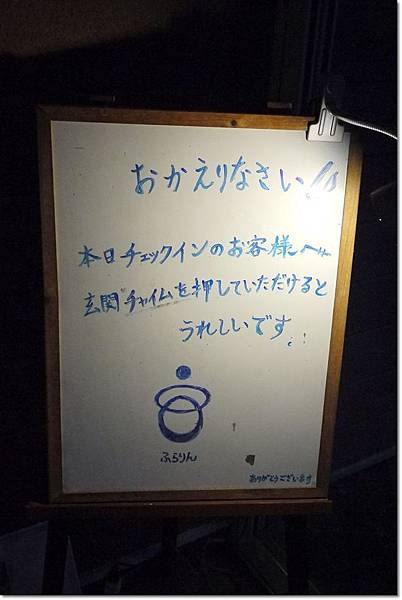 おかえりなさい!!
本日チェックインのお客様へ…
玄関チャイムを押していただけると
うれしいです。!
ふらりん
ありがとうございます